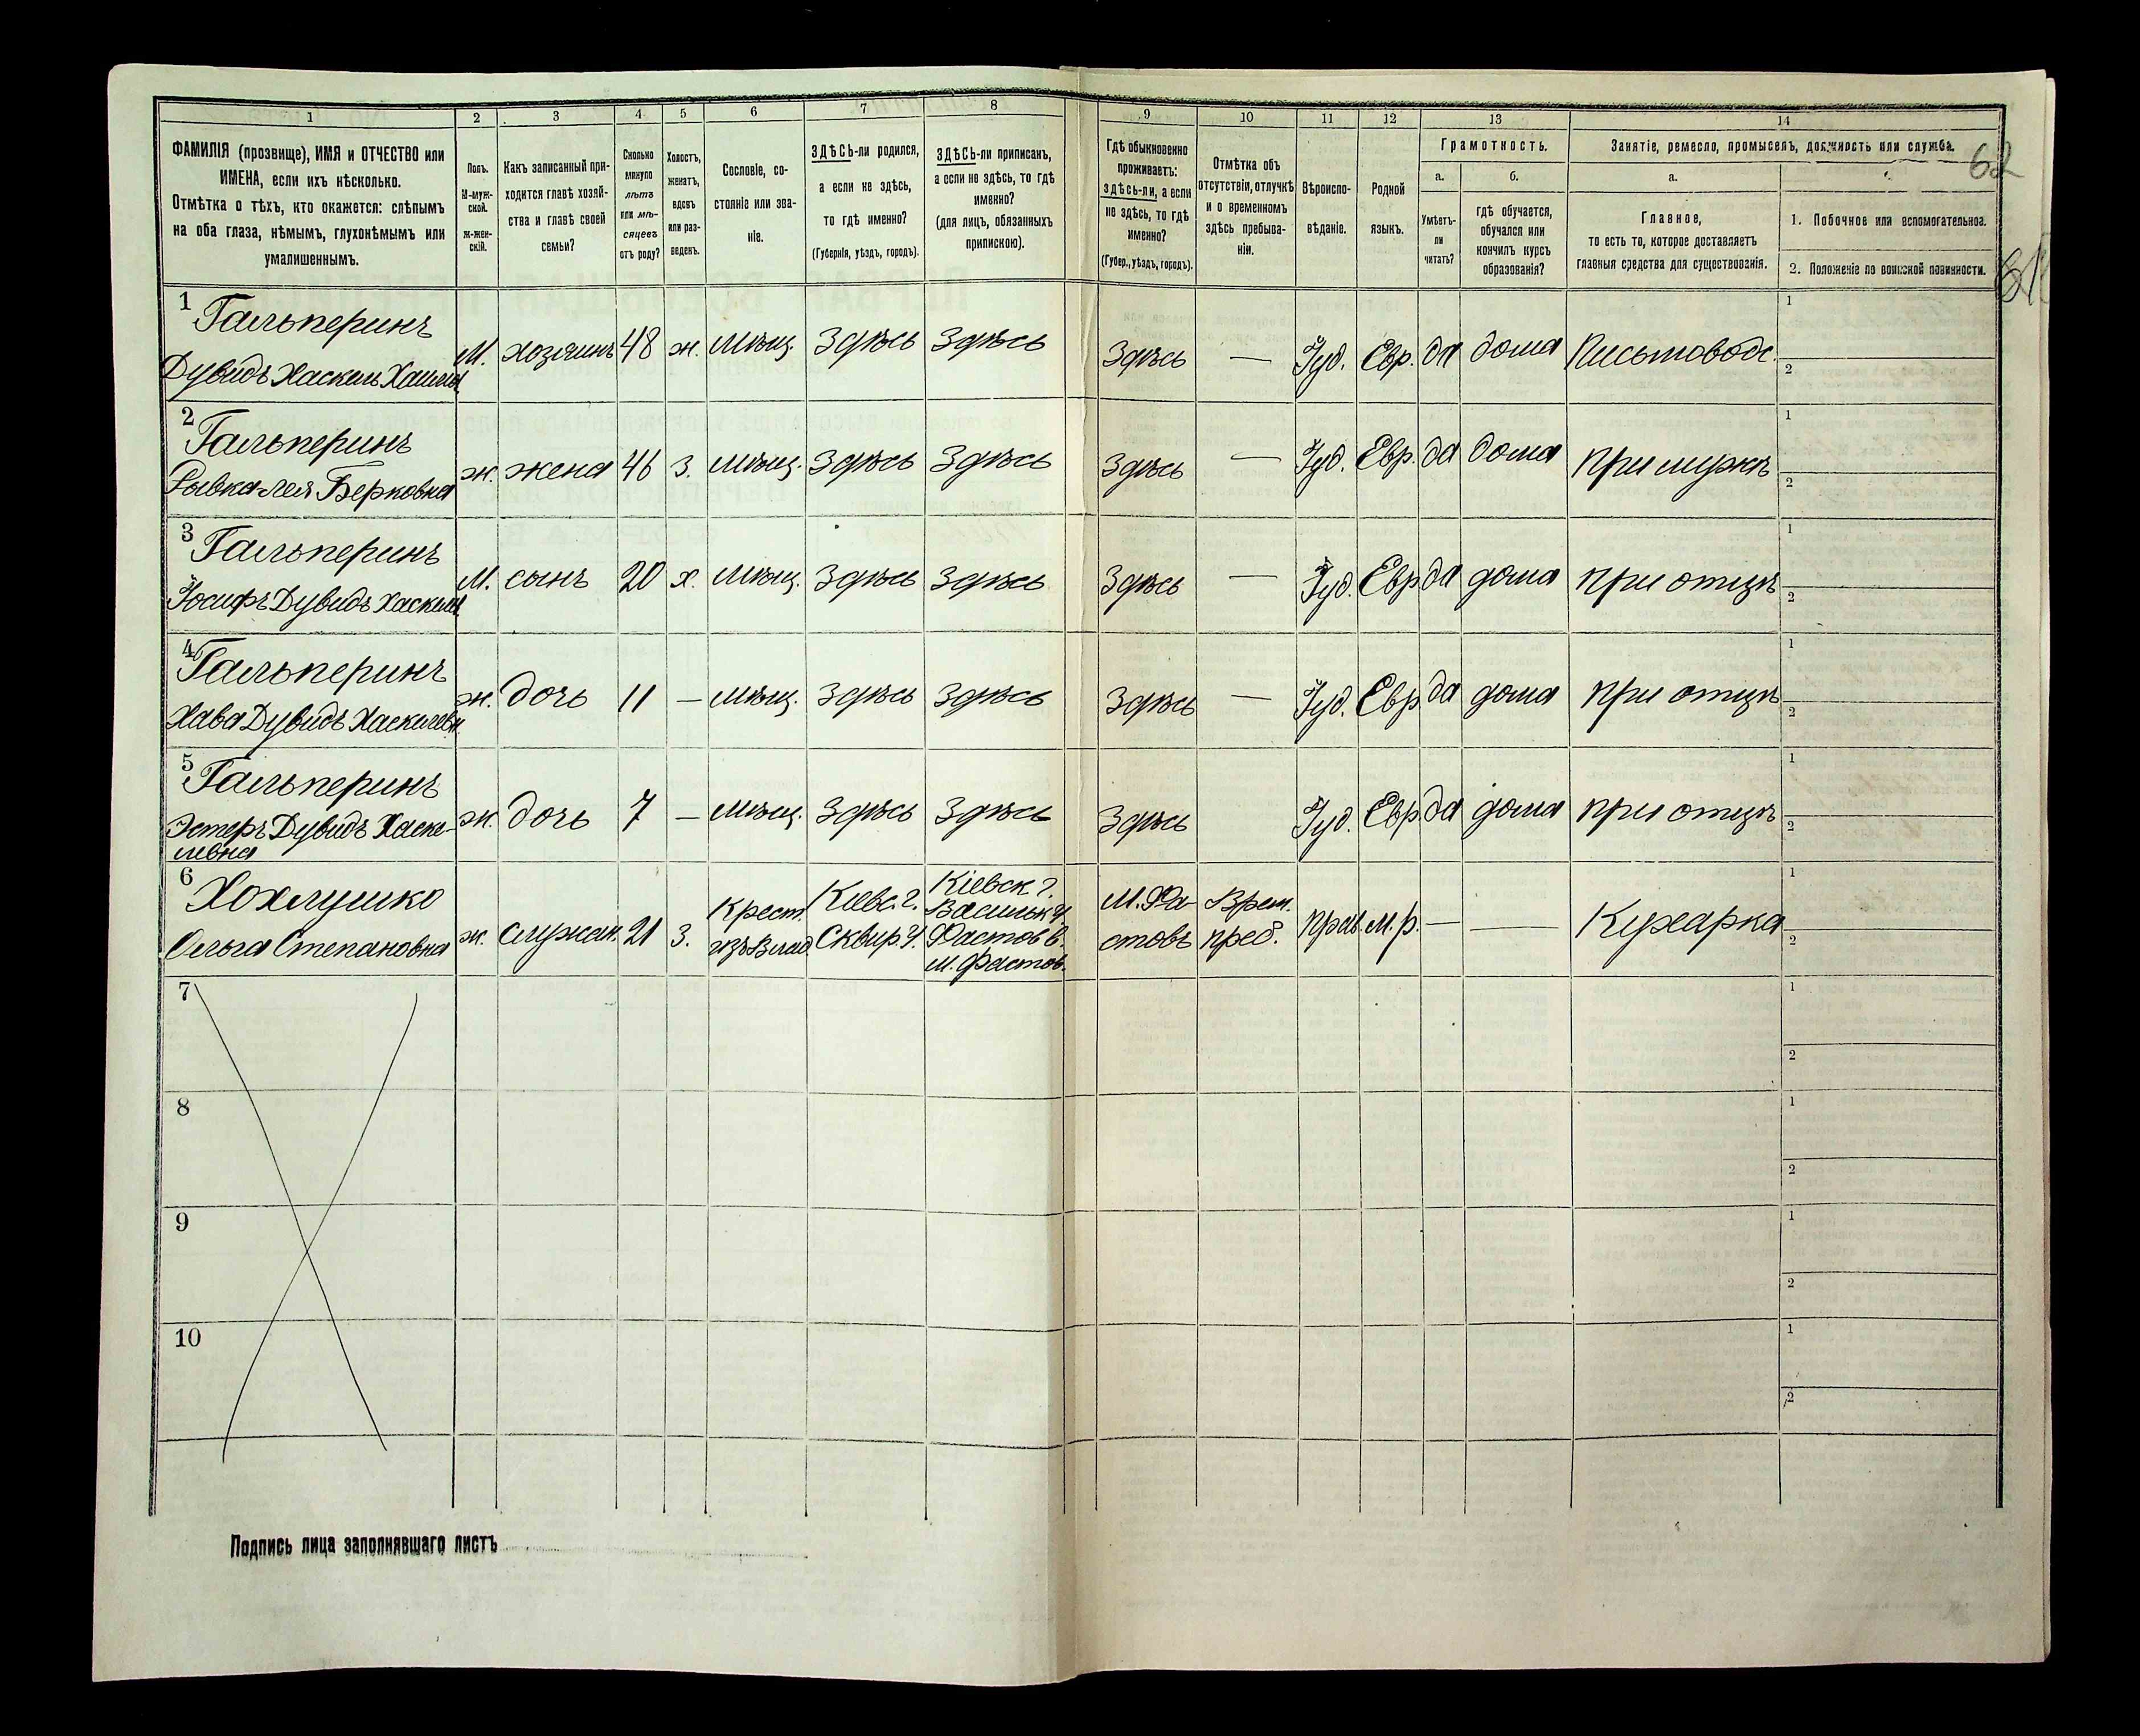 1 2 3 4 5 6 7 8 9 10 11 12 13 14
ФАМИЛІЯ (прозвище), ИМЯ и ОТЧЕСТВО или
ИМЕНА, если ихъ нѣсколько.
Отмѣтка о тѣхъ, кто окажется: слѣпымъ
на оба глаза, нѣмымъ, глухонѣмымъ или
умалишеннымъ.
Полъ.
М-муж-
ской.
ж-жен-
скій.
Какъ записанный при-
ходится главѣ хозяй-
ства и главѣ своей
семьи?
Сколько
минуло
лѣтъ
или мѣ-
сяцевъ
отъ роду?
Холостъ,
женатъ,
вдовъ
или раз-
веденъ.
Сословіе, со-
стояніе или зва-
ніе.
ЗДѢСЬ-ли родился,
а если не здѣсь,
то гдѣ именно?
(Губернія, уѣздъ, городъ).
ЗДѢСЬ-ли приписанъ,
а если не здѣсь, то гдѣ
именно?
(для лицъ, обязанныхъ
припискою).
Гдѣ обыкновенно
проживаетъ:
здѣсь-ли, а если
не здѣсь, то гдѣ
именно?
(Губер., уѣздъ, городъ).
Отмѣтка объ
отсутствіи, отлучкѣ
и о временномъ
здѣсь пребыва-
ніи.
Вѣроиспо-
вѣданіе.
Родной
языкъ.
Грамотность.
а.
Умѣетъ-
ли
читать?
б.
гдѣ обучается,
обучался или
кончилъ курсъ
образованія?
Занятіе, ремесло, промыселъ, должность или служба.
62
а.
Главное,
то есть то, которое доставляетъ
главныя средства для существованія.
1. Побочное или вспомогательное.
2. Положеніе по воинской повинности.
1 Гальперинъ
Дувидъ Хаскель
М. хозяинъ 48 ж. мѣщ. Здѣсь Здѣсь Здѣсь — Іуд. Евр. да дома Письмовод. 1 2
2 Гальперинъ
Рывка-Лея Берковна
ж. жена 46 з. мѣщ. Здѣсь Здѣсь Здѣсь — Іуд. Евр. да дома при мужѣ 1 2
3 Гальперинъ
Іосифъ Дувидъ
М. сынъ 20 х. мѣщ. Здѣсь Здѣсь Здѣсь — Іуд. Евр да дома при отцѣ 1 2
4 Гальперинъ
Хава Дувидъ Хаскилевн.
ж. дочь 11 — мѣщ. Здѣсь Здѣсь Здѣсь — Іуд. Евр да дома при отцѣ 1 2
5 Гальперинъ
Эстеръ Дувидъ Хаске-
левна
ж. дочь 7 — мѣщ. Здѣсь Здѣсь Здѣсь Іуд. Евр. да дома при отцѣ 1 2
6 Хохлушко
Ольга Степановна
ж. служан. 21 з.
Крест.
изъ Влад.
Кіевс. г.
Сквир. у.
Кіевск г.
Васильк у.
Фастов в.
м. Фастов.
М. Фа-
стовъ
Врем.
преб.
прав. м.р. — — Кухарка 1 2
7 1 2
8 1 2
9 1 2
10 1 2
Подпись лица заполнявшаго листъ